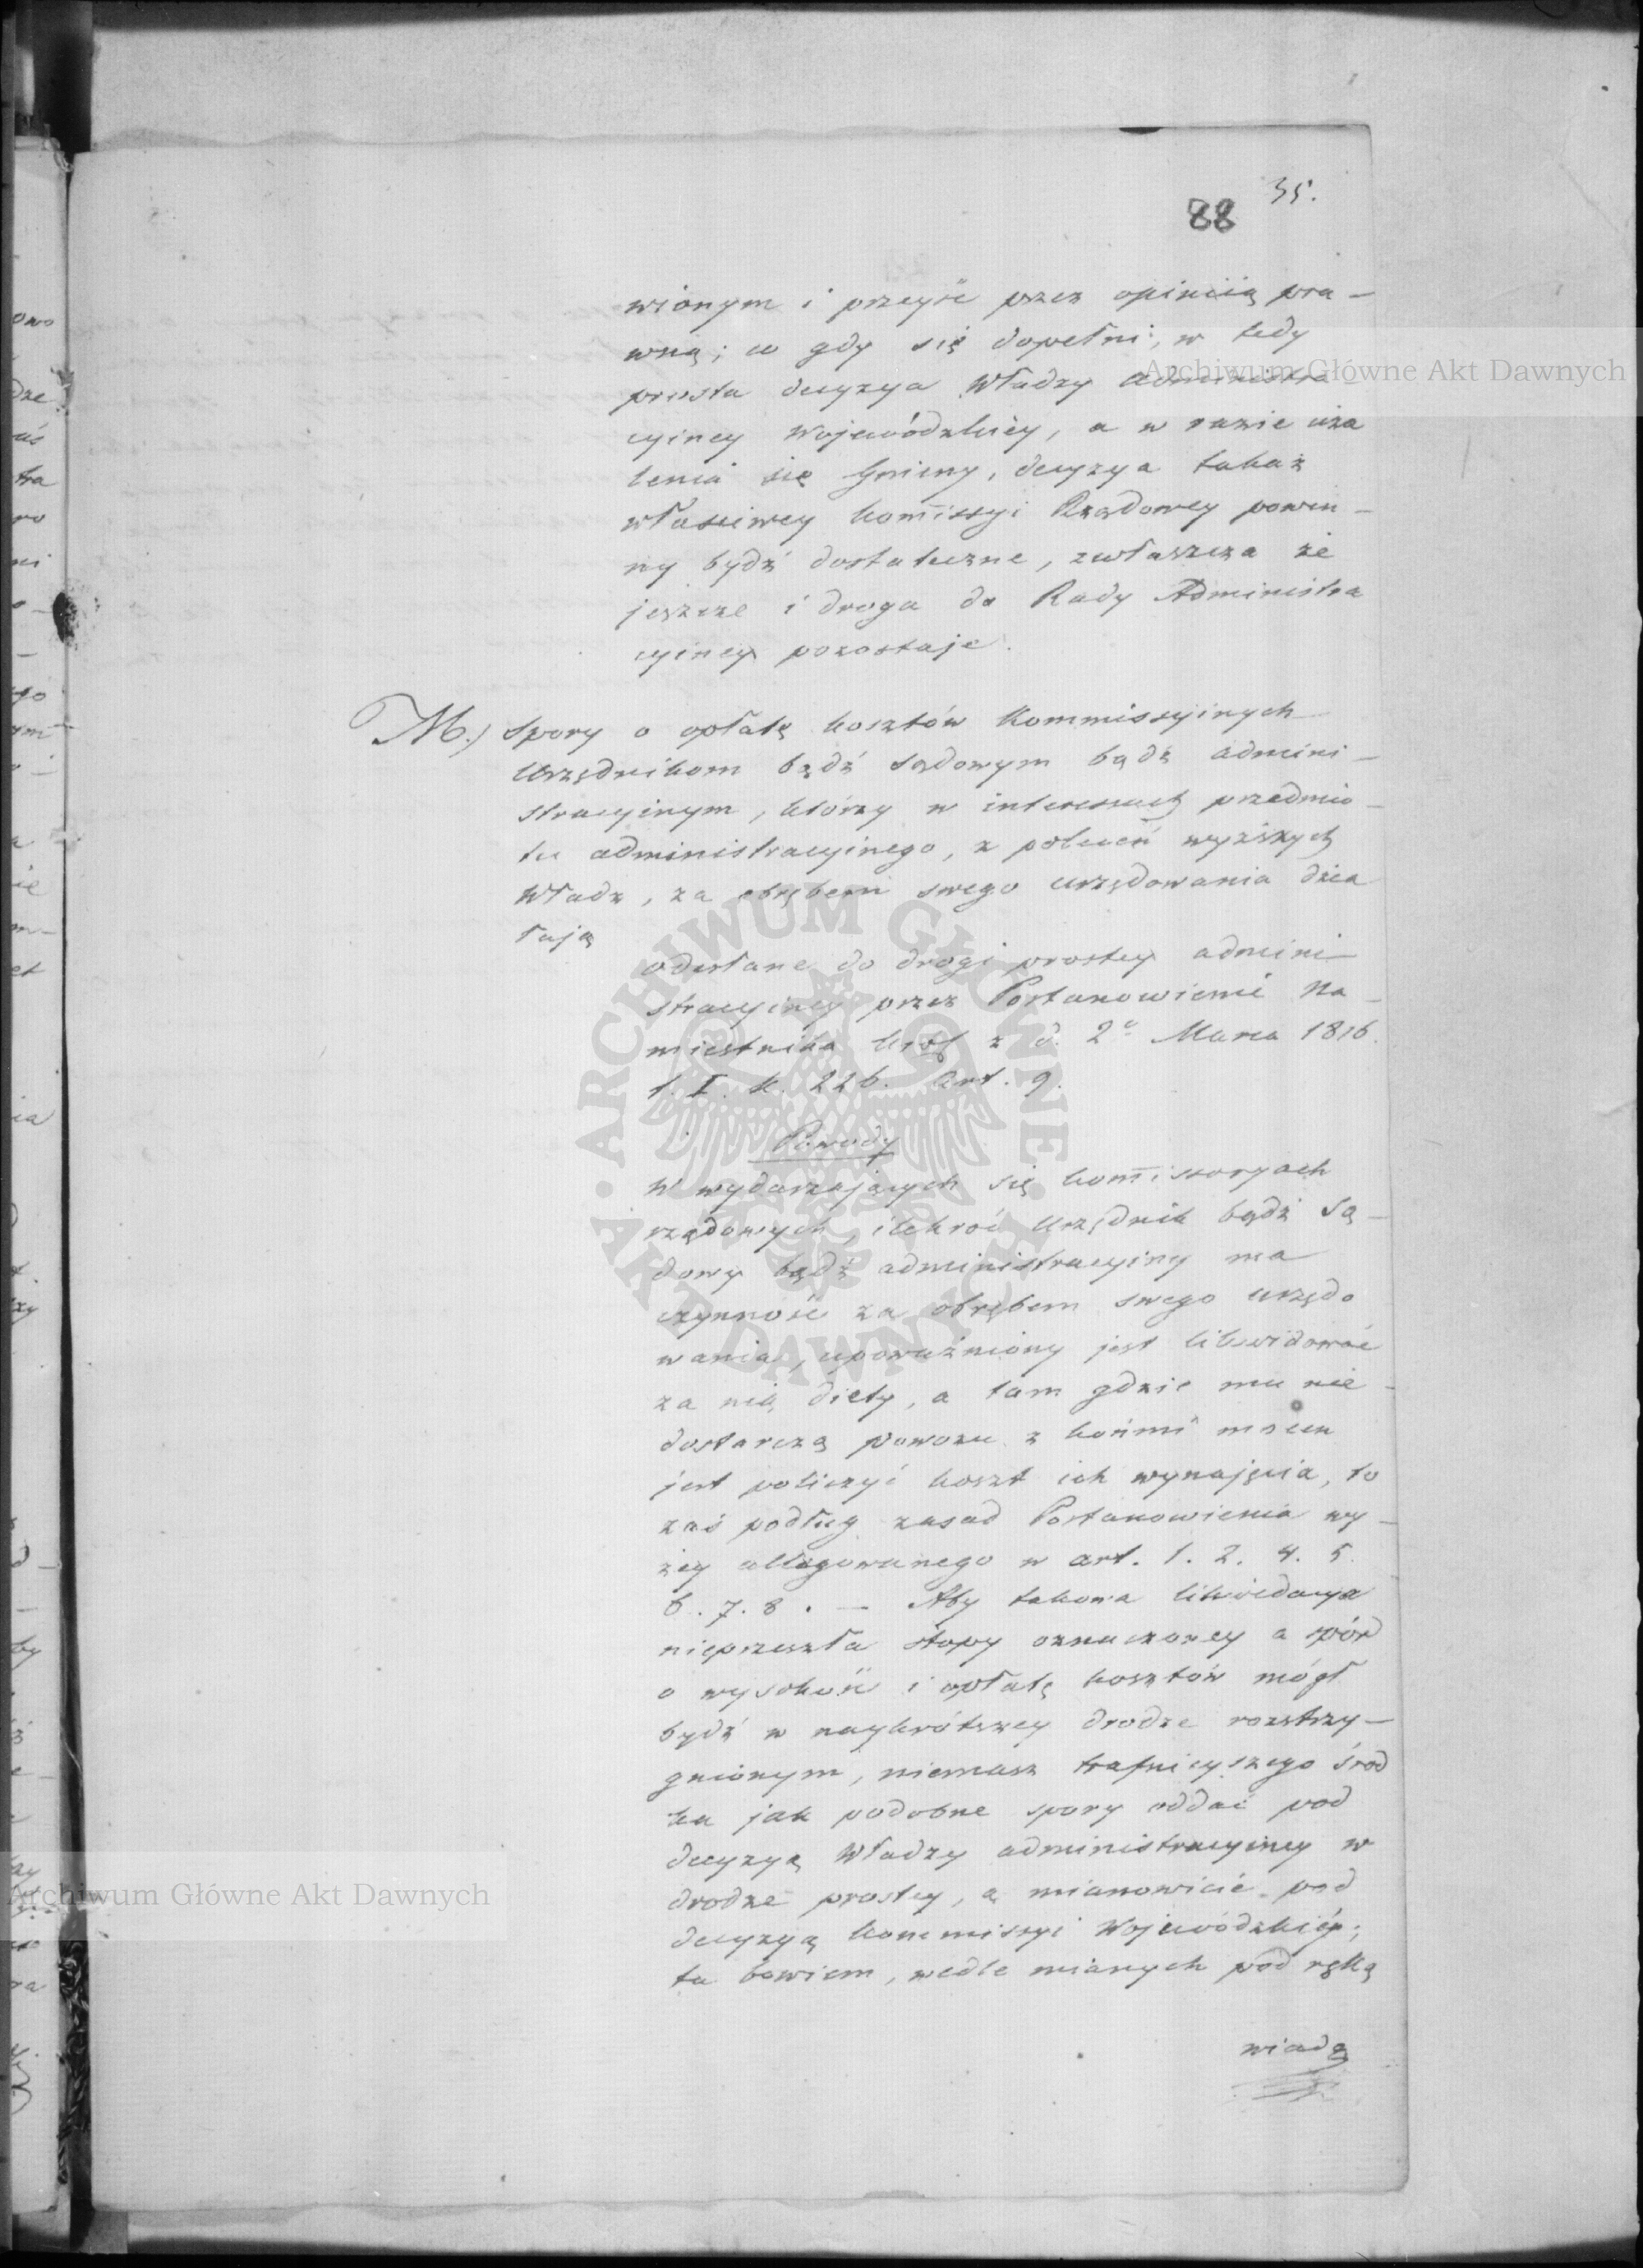 35.
88
wionym i przeyść przez opiniią pra-
wną; co gdy się dopełni, w tedy
prosta decyzya Władzy administra
cyiney Woiewódzkiéy, a w razie uża
lenia się Gminy, decyzya takaż
właściwey kom̄issyi Rządowey powin-
ny bydź dostateczne, zwłaszcza że
jeszcze i droga do Rady Administra
cyiney pozostaje.
M.) Spory o opłatę kosztów Kommissyinych
Urzędnikom bądź sądowym bądź admini-
stracyinym, którzy w interessach przedmio-
tu administracyinego, z poleceń wyższych
Władz, za obrębem swego urzędowania dzia
łają
odesłane do drogi prostey admini-
stracyiney przez Postanowienie Na-
miestnika Król z d. 2o Marca 1816.
t. I. k. 226. art. 9.
Powody
W wydarzających się kom̄issoryach
rządowych, ilekroć Urzędnik bądź Są-
dowy bądź administracyiny ma
czynność za obrębem swego urzędo
wania, upoważniony jest likwidować
za nią diety, a tam gdzie mu nie-
dostarczą powozu z końmi mocen
jest policzyć koszt ich wynajęcia, to
zaś podług zasad Postanowienia wy-
żey allegowanego w art. 1. 2. 4. 5.
6. 7. 8. - Aby takowa likwidacya
nieprzeszła stopy oznaczoney a spór
o wysokość i opłatę kosztów mógł
bydź w naykrótszey drodze rozstrzy-
gnionym, niemasz trafnieyszego środ
ka jak podobne spory oddać pod
decyzyą Władzy administracyiney w
drodze prostey, a mianowicie pod
decyzyą kommissyi Woiewódzkiéy;
ta bowiem, wedle mianych pod ręką
wiado
Archiwum Główne Akt Dawnych
ARCHIWUM GŁÓWNE AKT DAWNYCH
Archiwum Główne Akt Dawnych